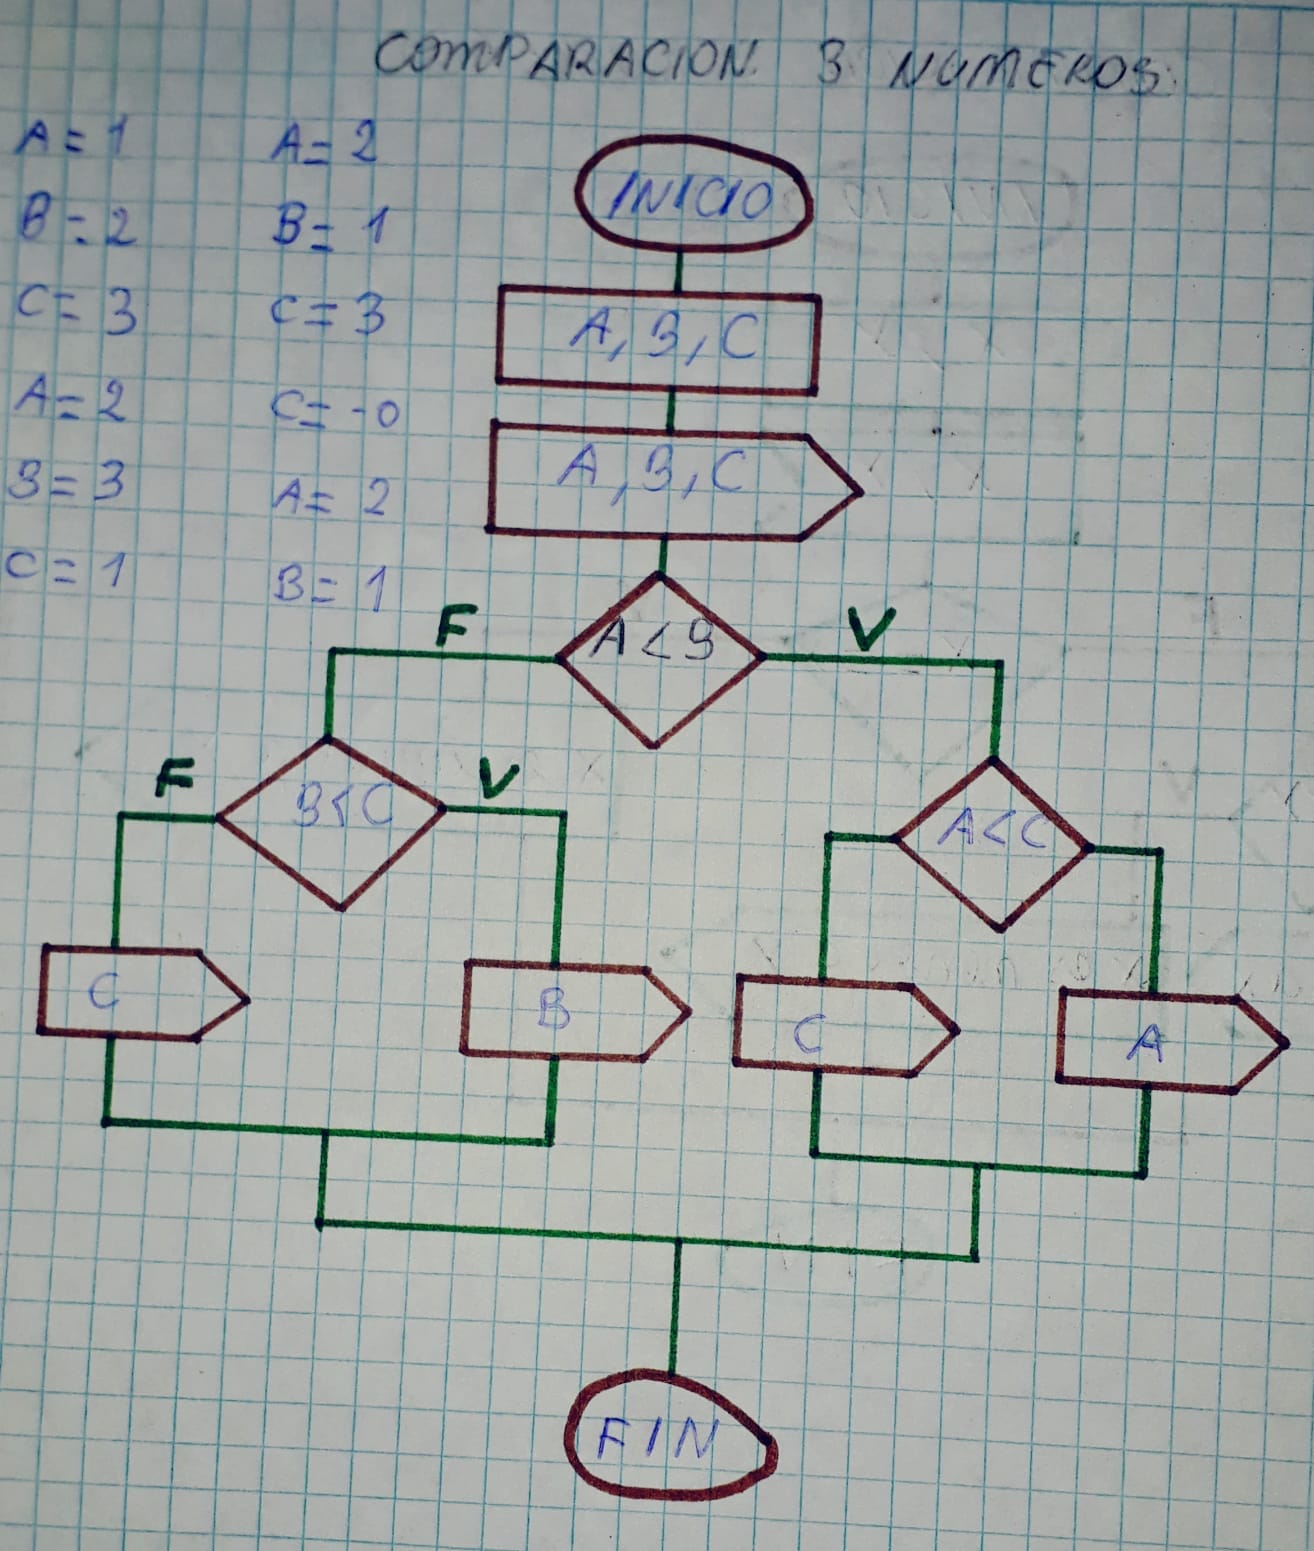 COMPARACION 3 NUMEROS
A = 1
B = 2
C = 3
A = 2
B = 3
C = 1
A = 2
B = 1
C = 3
C = -0
A = 2
B = 1
INICIO
A, B, C
A, B, C
A < B
F
V
B < C
F
V
A < C
C
B
C
A
FIN